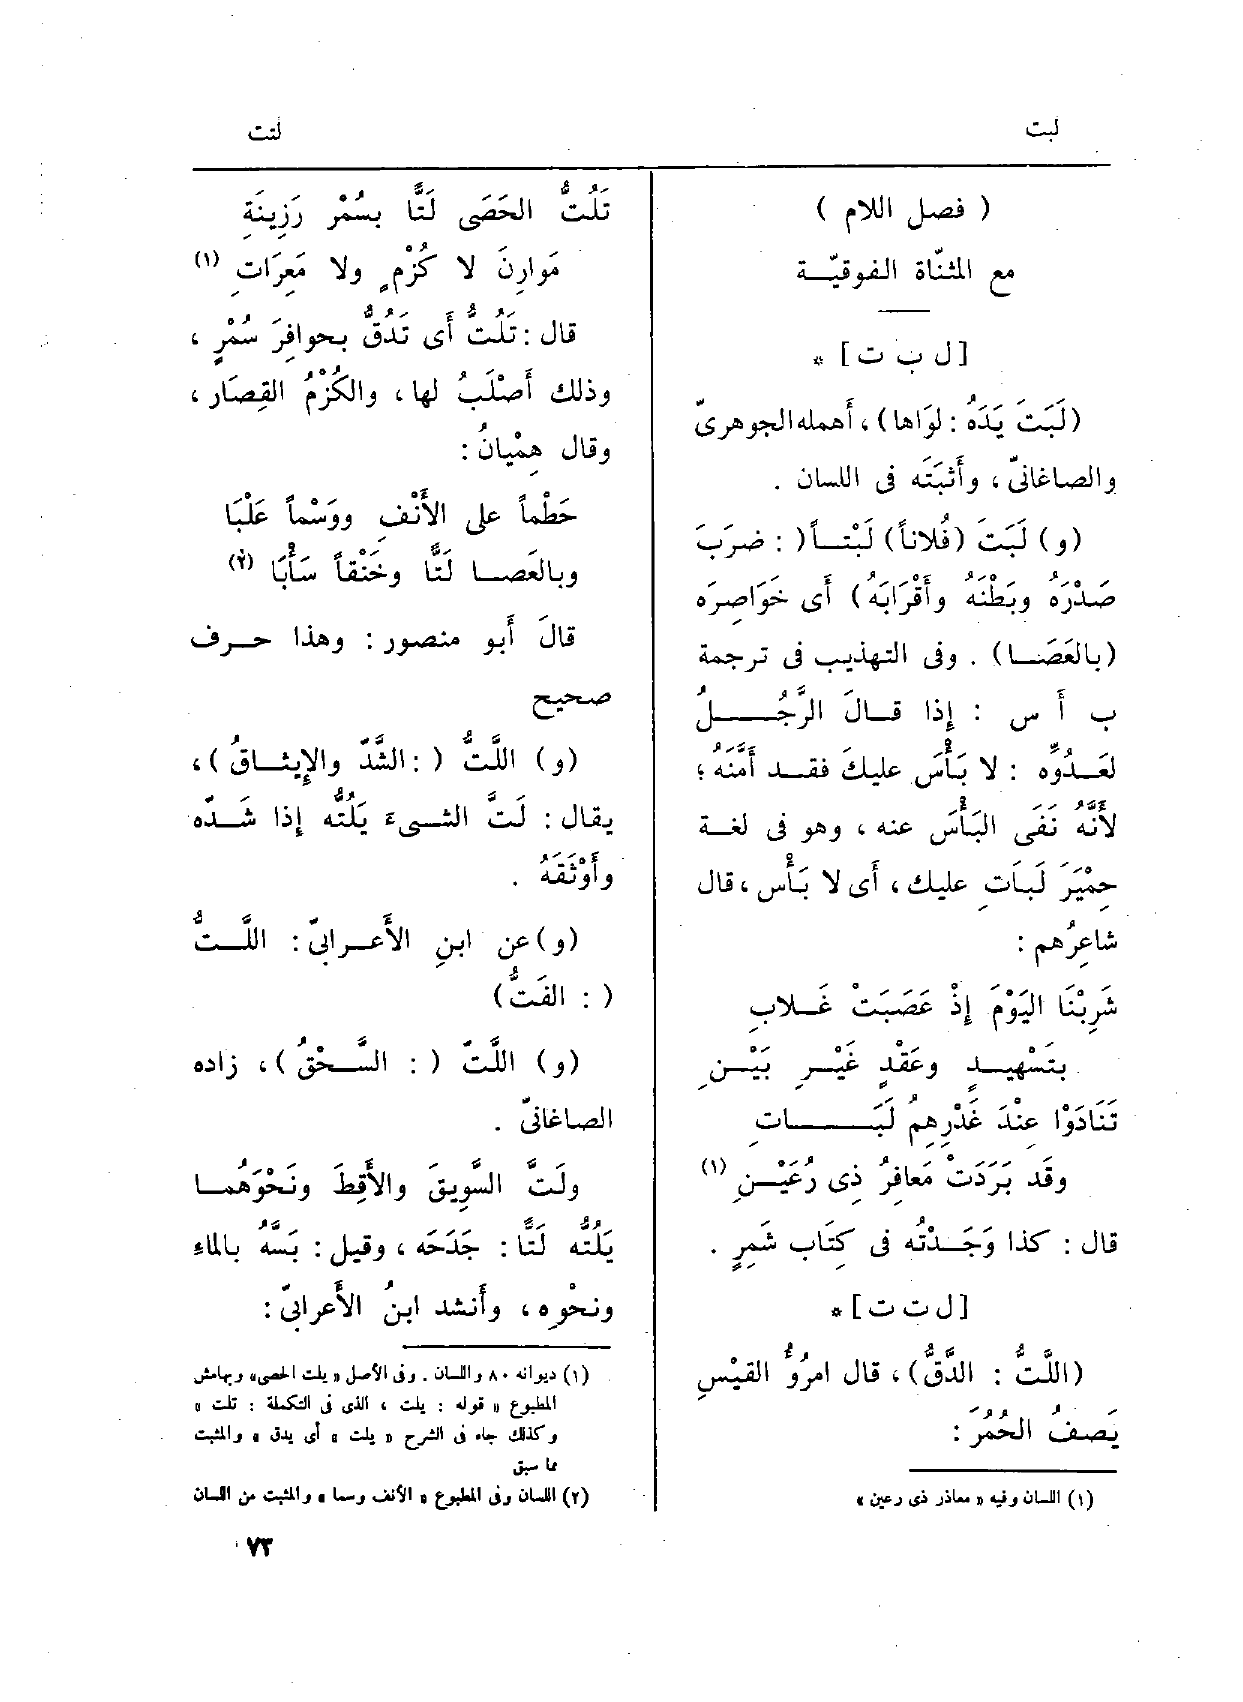 لبت
لتت
( فصل اللام )
مع المثنّاة الفوقيّـة
[ل ب ت] *
(لَبَتَ يَدَهُ : لوَاها) ، أَهمله الجوهرىّ
والصاغانىّ ، وأَثبَتَه فى اللسان .
(و) لَبَتَ (فُلاناً) لَبْتـاً( : ضرَبَ
صَدْرَهُ وبَطْنَهُ وأَقْرَابَهُ) أَى خَوَاصِرَه
(بالعَصَـا) . وفى التهذيب فى ترجمة
ب أَ س : إِذا قـالَ الرَّجُــلُ
لعَـدُوِّه : لا بَأْسَ عليكَ فقـد أَمَّنَهُ ؛
لأَنَّهُ نَفَى البَأْسَ عنه ، وهو فى لغـة
حِمْيَرَ لَبَاتِ عليك ، أَى لا بَأْس ، قال
شاعِرُهم :
شَرِبْنَا اليَوْمَ إِذْ عَصَبَتْ غَـلابِ
بتَسْهِيـدٍ وعَقْدٍ غَيْـرِ بَيْـنِ
تَنَادَوْا عِنْدَ غَدْرِهِمُ لَبَــاتِ
وقَد بَرَدَتْ مَعافِرُ ذِى رُعَيْـنِ (١)
قال : كذا وَجَـدْتُه فى كِتَاب شَمِرٍ .
[ل ت ت] *
(اللَّتُّ : الدَّقُّ) ، قال امرُؤُ القَيْسِ
يَصفُ الحُمُرَ :
(١) اللسان وفيه « معاذر ذى رعين »
تَلُتُّ الحَصَى لَتًّا بسُمْرٍ رَزِينَةٍ
مَوارِنَ لا كُزْمٍ ولا مَعِرَاتِ (١)
قال : تَلُتُّ أَى تَدُقُّ بحوافِرَ سُمْرٍ ،
وذلك أَصْلَبُ لها ، والكُزْمُ القِصَار ،
وقال هِمْيانُ :
حَطْماً على الأَنْفِ ووَسْماً عَلْبَا
وبالعَصـا لَتًّا وخَنْقاً سَأْبَا (٢)
قالَ أَبو منصور : وهذا حـرف
صحيح
(و) اللَّتُّ ( : الشَّدّ والإِيثـاقُ) ،
يقال : لَتَّ الشـىءَ يَلُتُّه إِذا شَـدّه
وأَوْثَقَهُ .
(و)عن ابنِ الأَعـرابىّ : اللَّـتُّ
( : الفَتُّ)
(و) اللَّتّ ( : السَّـحْقُ) ، زاده
الصاغانىّ .
ولَتَّ السَّوِيقَ والأَقِطَ ونَحْوَهُمـا
يَلُتُّه لَتًّا : جَدَحَه ، وقيل : بَسَّهُ بالماءِ
ونحْوِه ، وأَنشد ابنُ الأَعرابىّ :
(١) ديوانه ٨٠ واللسان . وفى الأصل « يلت الحصى» وبهامش
المطبوع « قوله : يلت ، الذى فى التكملة : تلت »
وكذلك جاء فى الشرح « يلت » أى يدق » والمثبت
مما سبق
(٢) اللسان وفى المطبوع « الأنف وسما » والمثبت من اللسان
٧٣